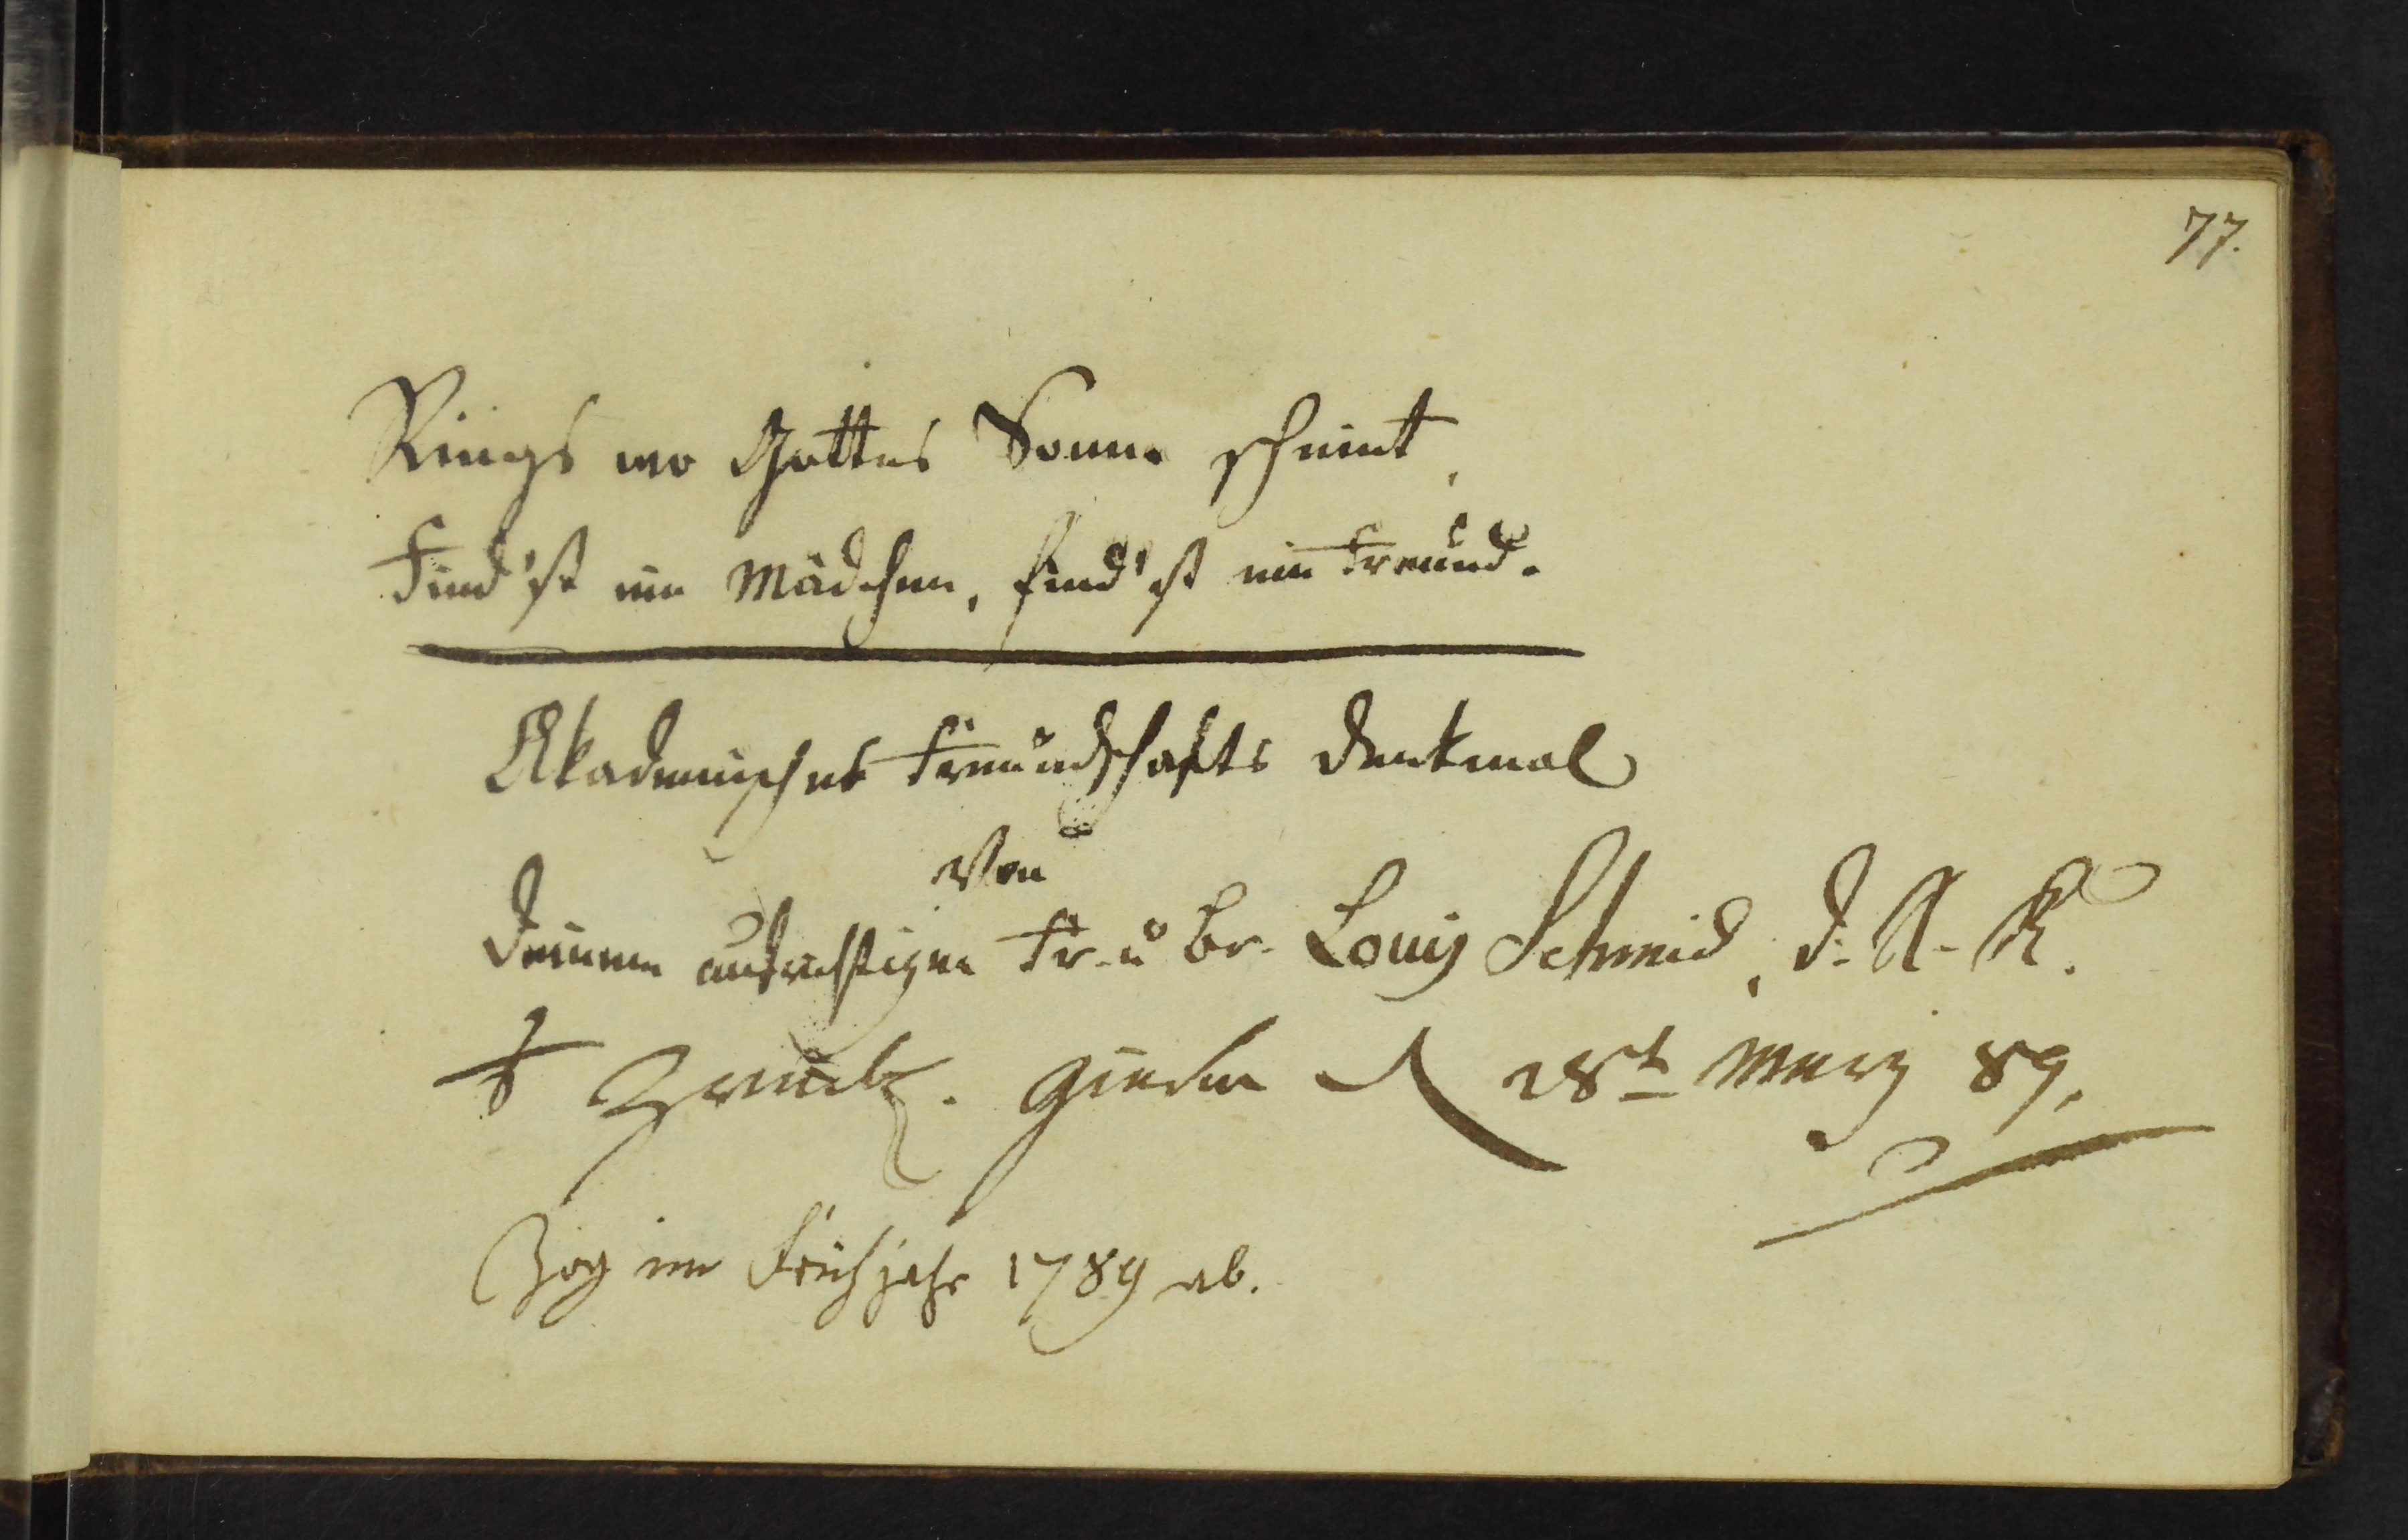 77.
Rings wo Gottes Sonne scheint,
Find'st ein Mädchen, find'st ein Freund.
Akademisches Freundschafts Denkmal
Von
Deinem aufrichtigen Fr. u Br. Louis Schmid, d. A. R.
Giesen d 28t Merz 89.
Zog im Frühjahr 1789 ab.